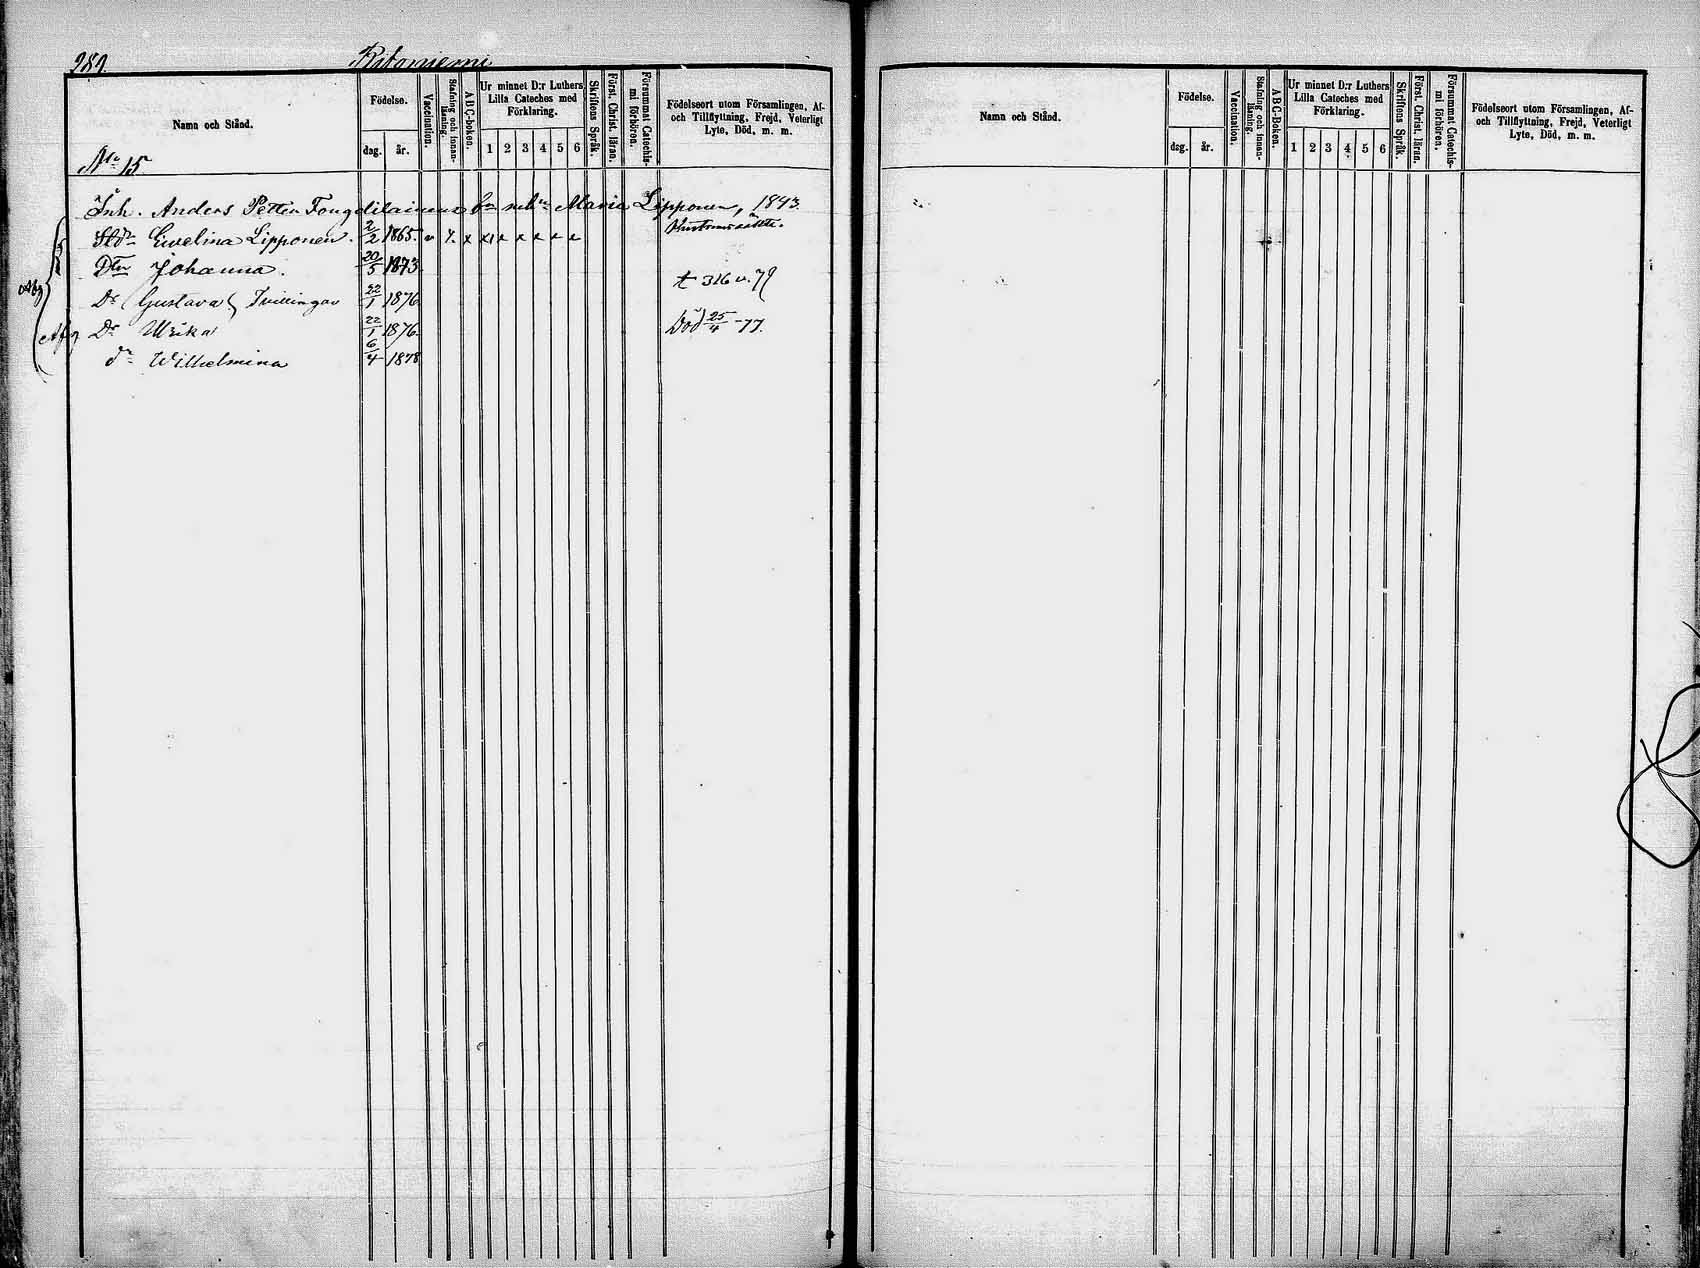 289.
Namn och Stånd.
Födelse.
dag.
år.
Vaccination.
Stafning och innan-
läsning.
ABC-boken.
Ur minnet D:r Luthers
Lilla Cateches med
Förklaring.
1 2 3 4 5 6
Skriftens Språk.
Först. Christ. läran.
Försummat Catechis-
mi förhören.
Födelseort utom Församlingen, Af-
och Tillflyttning, Frejd, Veterligt
Lyte, Död, m. m.
No 15
Inh. Anders Petter Maria Lipponen, 1843.
Ewelina Lipponen. 2/2 1865. v x x x x x x x
Dtr Johanna. 20/5 1873
Dr Gustava Tvillingar 22/1 1876
Dr Ulrika 22/1 1876. Död 25/4 -77.
dr Wilhelmina 6/4 1878
Namn och Stånd.
Födelse.
dag.
år.
Vaccination.
Stafning och innan-
läsning.
ABC-Boken.
Ur minnet D:r Luthers
Lilla Cateches med
Förklaring.
1 2 3 4 5 6
Skriftens Språk.
Först. Christ. läran.
Försummat Catechis-
mi förhören.
Födelseort utom Församlingen, Af-
och Tillflyttning, Frejd, Veterligt
Lyte, Död, m. m.